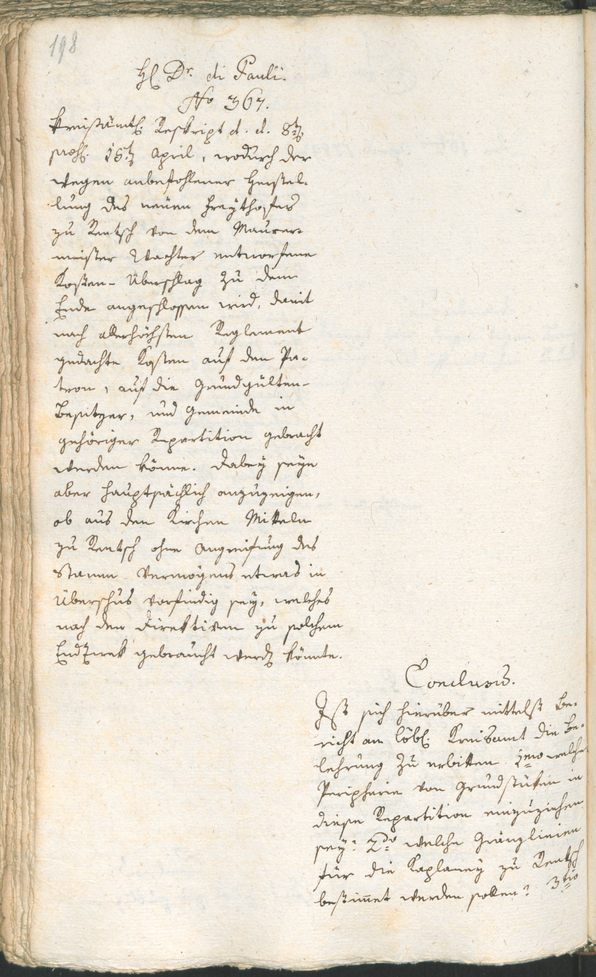 198
H. Dr. di Pauli.
No 367.
Kreisämtl. Reskript d. d. 8t.
præs. 15t. April, wodurch der
wegen anbefohlener Herstel-
lung des neuen Freythofes
zu Rentsch von dem Maurer-
meister Wachter entworfene
Kosten-Überschlag zu dem
Ende angeschlossen wird, damit
nach allerhöchsten Reglement
gedachte Kosten auf den Pa-
tron, auf die Grundgülten-
Besitzer, und Gemeinde in
gehöriger Repartition gebracht
werden könne. Dabey seye
aber hauptsächlich anzuzeigen,
ob aus den Kirchen Mitteln
zu Rentsch ohne Angreifung des
Stamm Vermögens etwas in
Überschus vorfindig sey, welches
nach den Direktiven zu solchem
Endzwek gebraucht werd. könnte.
Conclusis.
Ist sich hierüber mittelst Be-
richt an löbl. Kreisamt die Be-
lehrung zu erbitten 1mo welche
Peripherie von Grundstüken in
diese Repartition einzuziehen
sey? 2do welche Gränzlinien
für die Kaplaney zu Rentsch
bestimmet werden sollen? 3tio